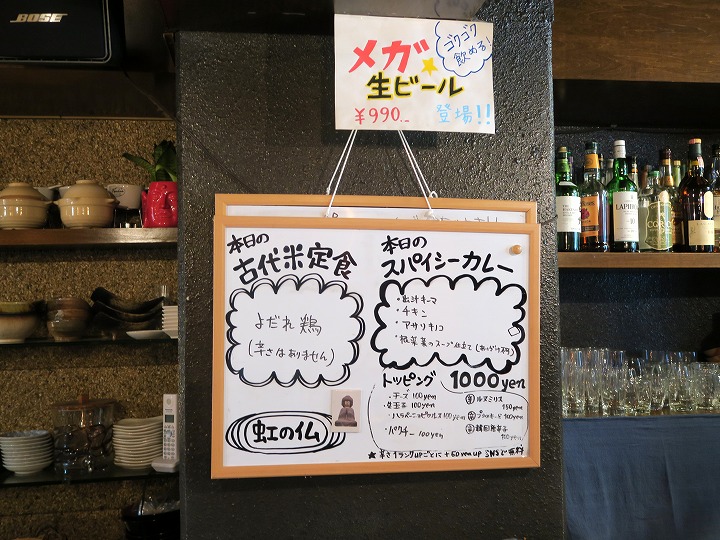 BOSE
メガ
ゴクゴク
飲める!
生ビール
¥990.-
登場!!
本日の
古代米定食
よだれ鶏
(辛さはありません)
虹の仏
本日の
スパイシーカレー
・出汁キーマ
・チキン
・アサリキノコ
・根菜葉のスープ仕立て
トッピング
1000yen
・チーズ 100yen
・煮玉子 100yen
・ハラペーニョピクルス 100yen
・パクチー 100yen
150yen
100yen
100yen
★辛さ1ランクupごとに+50yen up
LAPHR